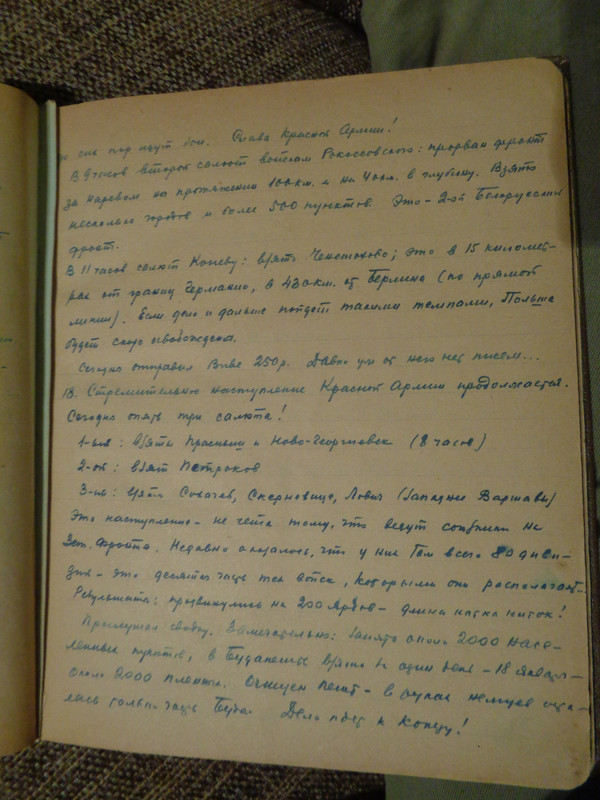 до сих пор идут бои. Слава Красной Армии!
В 9 часов второй салют войскам Рокоссовского: прорван фронт
за Наревом на протяжении 100 км. и на 40 км. в глубину. Взято
несколько городов и более 500 пунктов. Это – 2-ой Белорусский
фронт.
В 11 часов салют Коневу: взято Ченстохово; это в 15 километ-
рах от границ Германии, в 430 км. от Берлина (по прямой
линии). Если дело и дальше пойдет такими темпами, Польша
будет скоро освобождена.
Сегодня отправил Вове 250 р. Давно уж от него нет писем...
18. Стремительное наступление Красной Армии продолжается.
Сегодня опять три салюта!
1-ый: взяты Прасныш и Ново-Георгиевск (8 часов)
2-ой: взят Петроков
3-ий: взяты Сохачев, Скерневице, Лович (западнее Варшавы)
Это наступление – не чета тому, что ведут союзники на
Зап. Фронте. Недавно оказалось, что у них там всего 80 диви-
зий – это десятая часть тех войск, которыми они располагают.
Результаты: продвинулись на 200 ярдов – длина катка ниток!
Прослушал сводку. Замечательно: занято около 2000 насе-
ленных пунктов, в Будапеште взято за один день – 18 января –
около 2000 пленных. Очищен Пешт – в руках немцев оста-
лась только часть Буда. Дело идет к концу!